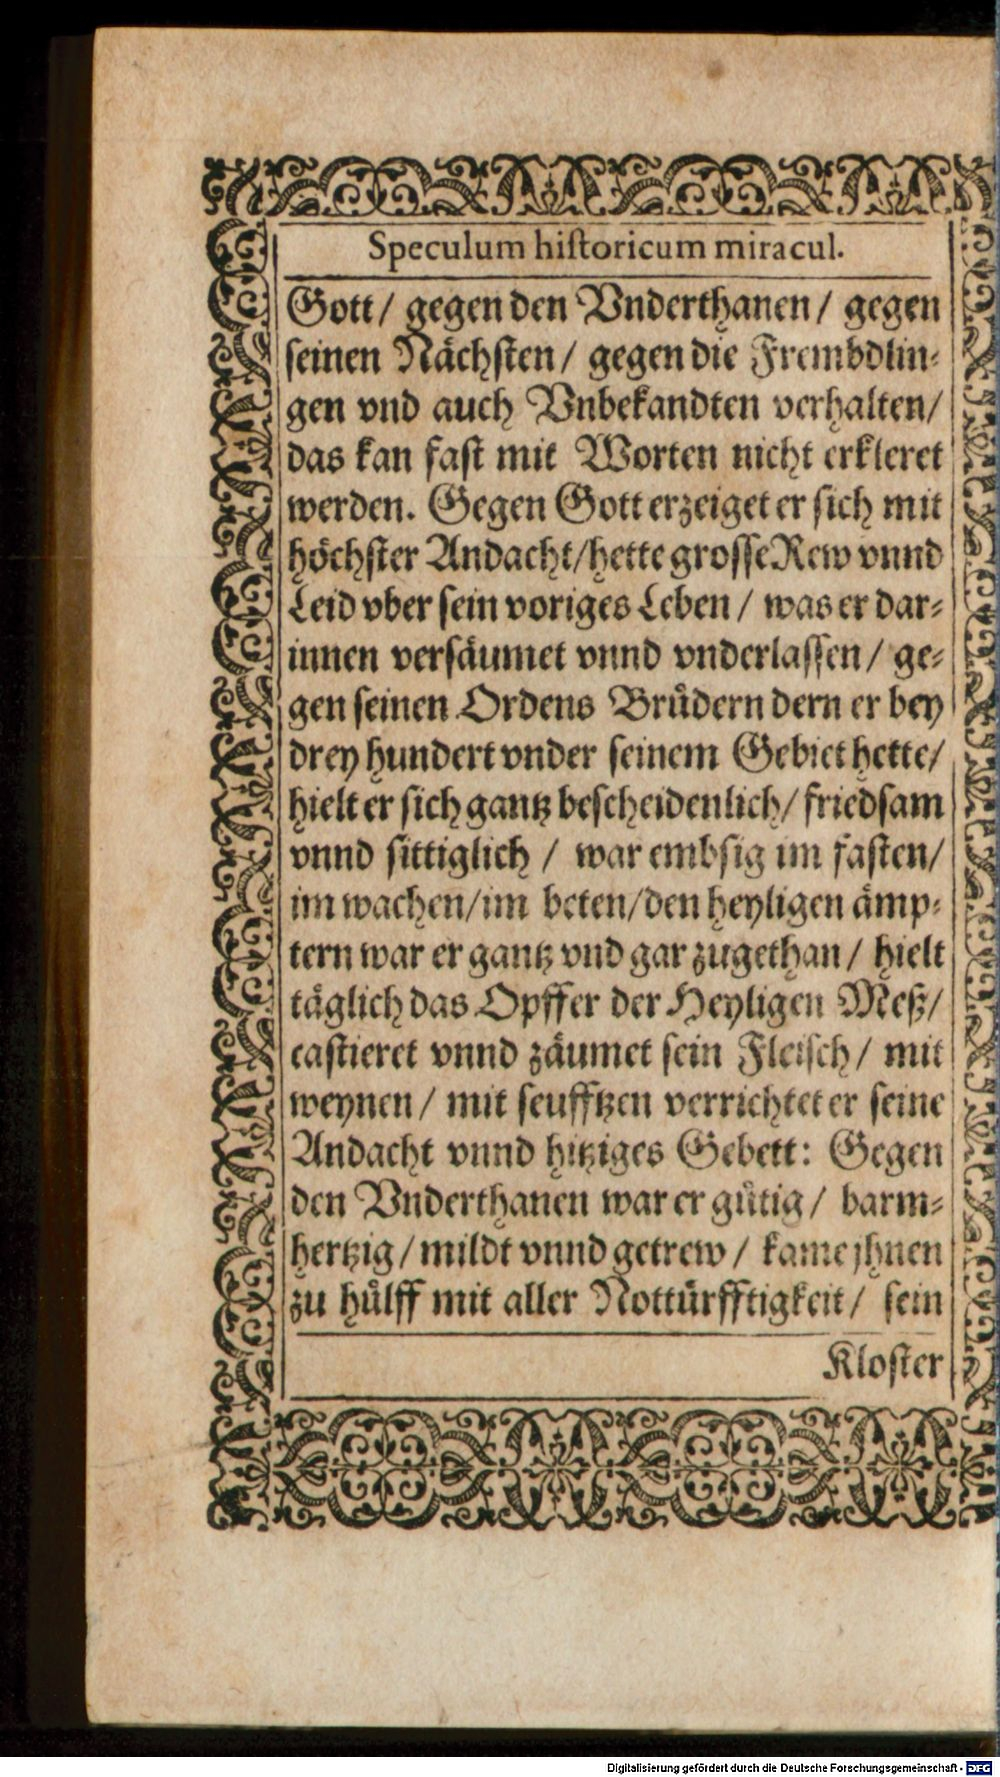 Speculum historicum miracul.
Gott / gegen den Vnderthanen / gegen
seinen Nächsten / gegen die Frembdlin-
gen vnd auch Vnbekandten verhalten /
das kan fast mit Worten nicht erkleret
werden. Gegen Gott erzeiget er sich mit
höchster Andacht / hette grosse Rew vnnd
Leid vber sein voriges Leben / was er dar-
innen versäumet vnnd vnderlassen / ge-
gen seinen Ordens Brüdern dern er bey
drey hundert vnder seinem Gebiet hette /
hielt er sich gantz bescheidenlich / friedsam
vnnd sittiglich / war embsig im fasten /
im wachen / im beten / den heyligen ämp-
tern war er gantz vnd gar zugethan / hielt
täglich das Opffer der Heyligen Meß /
castieret vnnd zäumet sein Fleisch / mit
weynen / mit seufftzen verrichtet er seine
Andacht vnnd hitziges Gebett: Gegen
den Vnderthanen war er gütig / barm-
hertzig / mildt vnnd getrew / kame jhnen
zu hülff mit aller Nottürfftigkeit / sein
Kloster
Digitalisierung gefördert durch die Deutsche Forschungsgemeinschaft - DFG